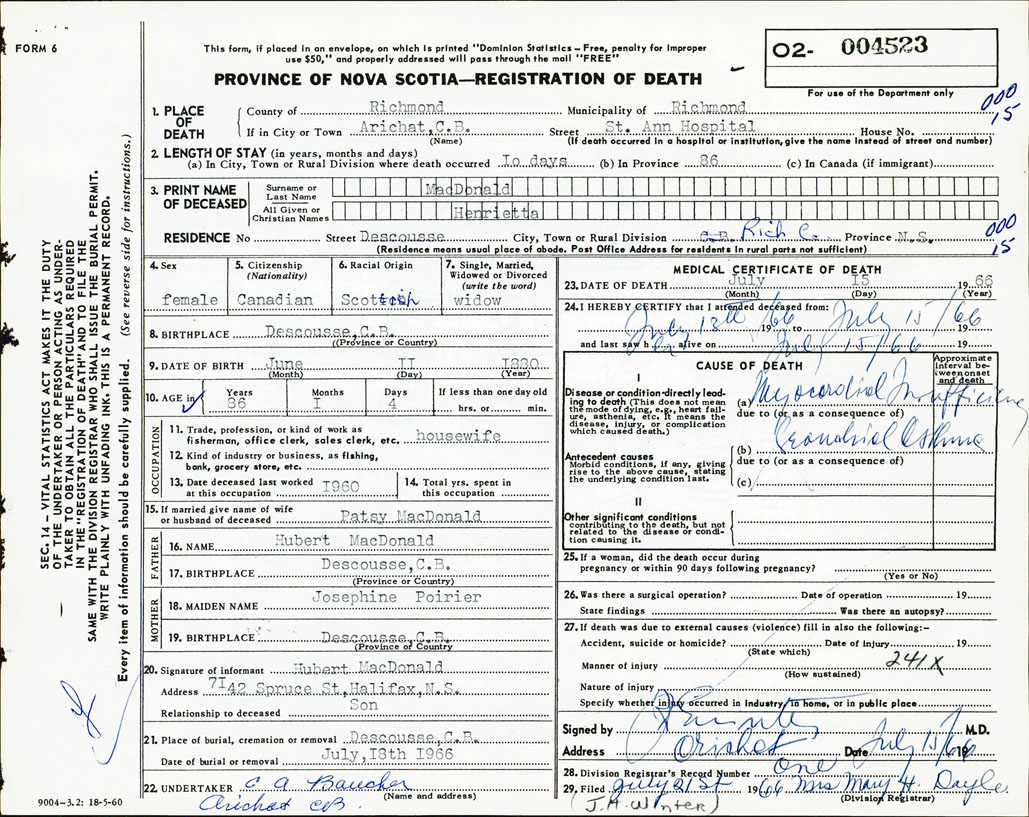 FORM 6
This form, if placed in an envelope, on which is printed "Dominion Statistics – Free, penalty for improper
use $50," and properly addressed will pass through the mail "FREE"
PROVINCE OF NOVA SCOTIA—REGISTRATION OF DEATH
02- 004523
For use of the Department only
000
15
1. PLACE OF DEATH
County of Richmond Municipality of Richmond
If in City or Town Arichat,C.B. Street St. Ann Hospital House No.
(Name) (If death occurred in a hospital or institution, give the name instead of street and number)
2. LENGTH OF STAY (in years, months and days)
(a) In City, Town or Rural Division where death occurred Io days (b) In Province 86 (c) In Canada (if immigrant)
3. PRINT NAME OF DECEASED
Surname or Last Name MacDonald
All Given or Christian Names Henrietta
000
15
RESIDENCE No Street Descousse City, Town or Rural Division C.B. Rich Co. Province N.S.
(Residence means usual place of abode. Post Office Address for residents in rural parts not sufficient)
4. Sex female
5. Citizenship (Nationality) Canadian
6. Racial Origin Scottish
7. Single, Married, Widowed or Divorced (write the word) widow
8. BIRTHPLACE Descousse,C.B.
(Province or Country)
9. DATE OF BIRTH June II 1880
(Month) (Day) (Year)
10. AGE in Years 86 Months I Days 4 If less than one day old hrs. or min.
OCCUPATION
11. Trade, profession, or kind of work as
fisherman, office clerk, sales clerk, etc. housewife
12. Kind of industry or business, as fishing,
bank, grocery store, etc.
13. Date deceased last worked at this occupation I960
14. Total yrs. spent in this occupation
15. If married give name of wife
or husband of deceased Patsy MacDonald
FATHER
16. NAME Hubert MacDonald
17. BIRTHPLACE Descousse,C.B.
(Province or Country)
MOTHER
18. MAIDEN NAME Josephine Poirier
19. BIRTHPLACE Descousse,C.B.
(Province or Country)
20. Signature of informant Hubert MacDonald
Address 7I42 Spruce St,Halifax,N.S.
Relationship to deceased Son
21. Place of burial, cremation or removal Descousse,C.B.
Date of burial or removal July,I8th I966
22. UNDERTAKER C A Boucher
(Name and address)
Arichat CB
9004-3.2: 18-5-60
MEDICAL CERTIFICATE OF DEATH
23. DATE OF DEATH July I5 1966
(Month) (Day) (Year)
24. I HEREBY CERTIFY that I attended deceased from:
July 13th/66 19 to July 15/66 19
and last saw her alive on July 15/66 19
CAUSE OF DEATH
Approximate interval between onset and death
I
Disease or condition directly leading to death (This does not mean the mode of dying, e.g., heart failure, asthenia, etc. It means the disease, injury, or complication which caused death.)
(a) Myocardial Insufficiency
due to (or as a consequence of)
Antecedent causes
Morbid conditions, if any, giving rise to the above cause, stating the underlying condition last.
(b) Bronchial Asthma
due to (or as a consequence of)
(c)
II
Other significant conditions
contributing to the death, but not related to the disease or condition causing it.
25. If a woman, did the death occur during
pregnancy or within 90 days following pregnancy?
(Yes or No)
26. Was there a surgical operation? Date of operation 19
State findings Was there an autopsy?
27. If death was due to external causes (violence) fill in also the following:–
Accident, suicide or homicide? Date of injury 19
(State which)
241X
Manner of injury
(How sustained)
Nature of injury
Specify whether injury occurred in Industry, in home, or in public place
Signed by M.D.
Address Arichat Date July 15/66 19
28. Division Registrar's Record Number one
29. Filed July 21st 1966 Mrs Mary H. Doyle
(Division Registrar)
(J.H. WINTER)
SEC. 14 – VITAL STATISTICS ACT MAKES IT THE DUTY
OF THE UNDERTAKER OR PERSON ACTING AS UNDER-
TAKER TO OBTAIN ALL THE PARTICULARS REQUIRED
IN THE "REGISTRATION OF DEATH" AND TO FILE THE
SAME WITH THE DIVISION REGISTRAR WHO SHALL ISSUE THE BURIAL PERMIT.
WRITE PLAINLY WITH UNFADING INK. THIS IS A PERMANENT RECORD.
Every item of information should be carefully supplied. (See reverse side for instructions.)